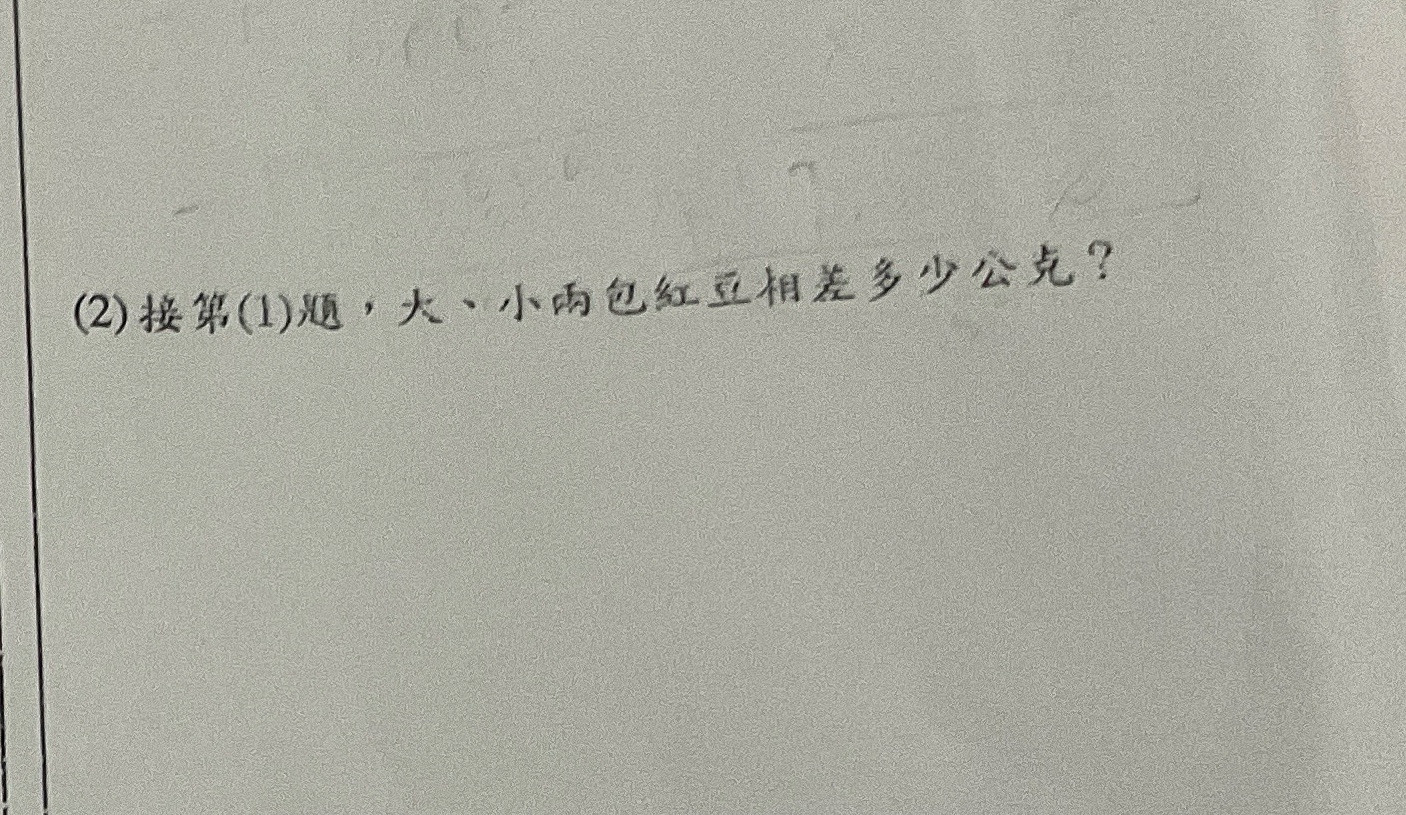 (2)接第(1)題，大、小兩包紅豆相差多少公克？